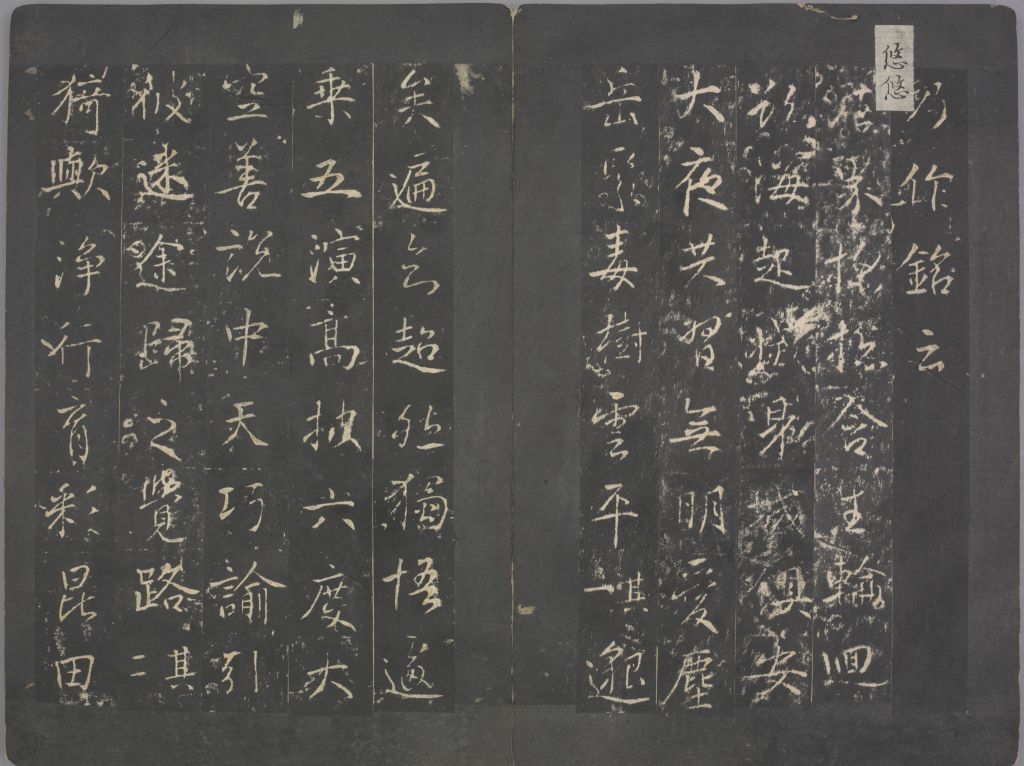 乃作銘云
悠悠
界含生輪迴
欲海起滅城俱安
大夜共習無明愛塵
岳聚毒樹雲平其一邈
矣遍知超然獨悟
乘五演高披六度大
空善說中天巧諭引
彼迷途歸之覺路其二
猗歟淨行育彩昆田